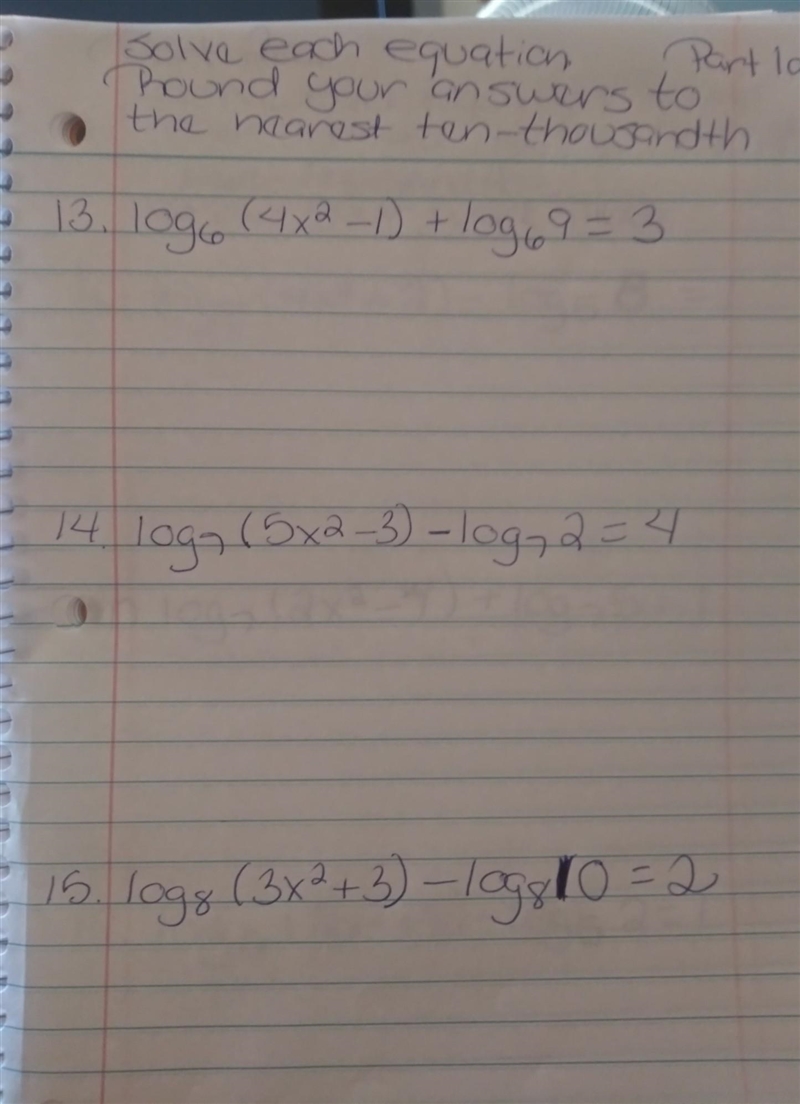 Solve each equation Part 10
Round your answers to
the nearest ten-thousandth
13. log₆ (4x² - 1) + log₆9 = 3
14. log₇ (5x2 - 3) - log₇ 2 = 4
15. log₈ (3x² + 3) - log₈10 = 2